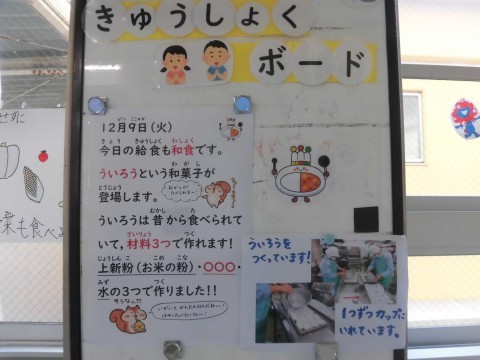 きゅうしょく
ボード
12月9日(火)
今日の給食も和食です。
ういろうという和菓子が
登場します。
ういろうは昔から食べられて
いて、材料3つで作れます!
上新粉(お米の粉)・○○○・
水の3つで作りました!!
ういろうを
つくっています!
1つずつカップに
いれています。